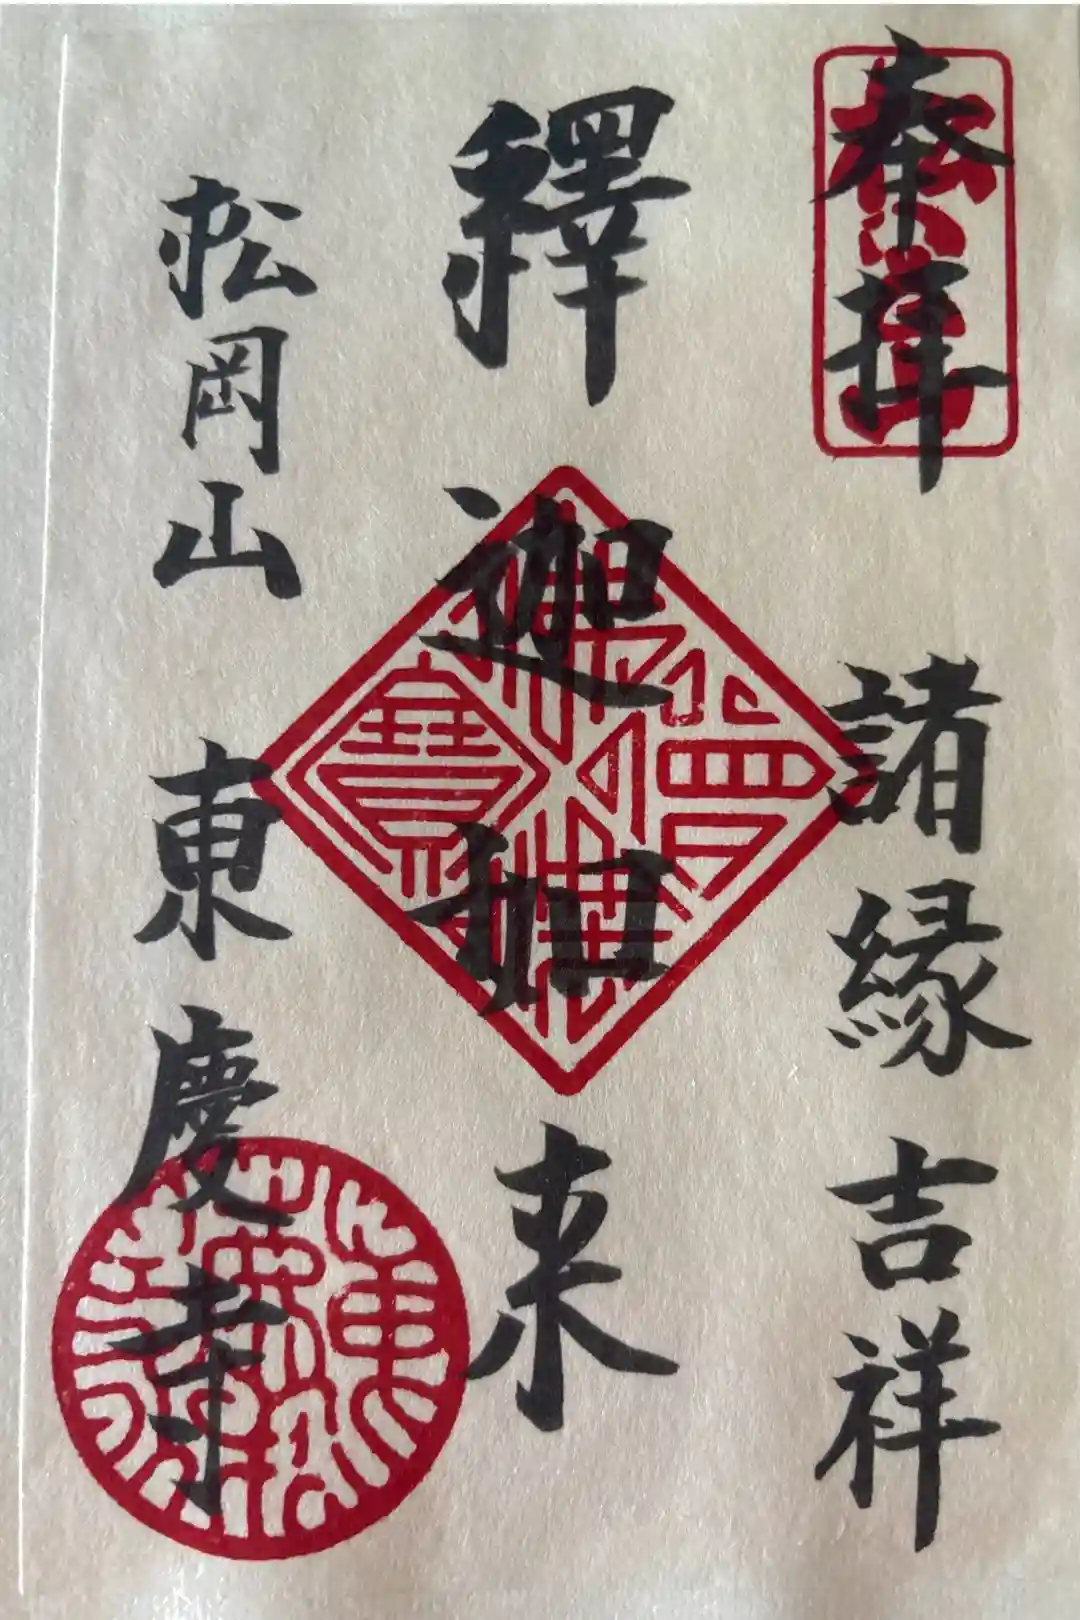 奉拝
諸縁吉祥
釋迦如来
松岡山
東慶寺
佛法僧寳